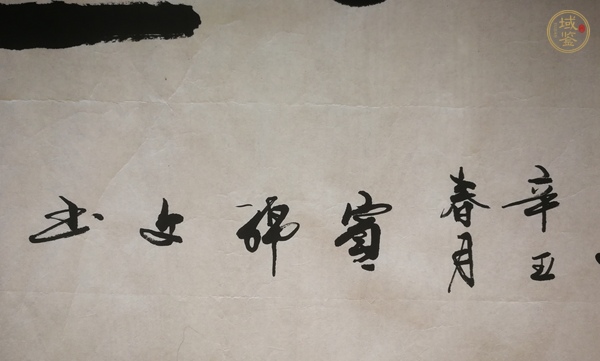 辛丑
春月
賓
文
书
域鉴